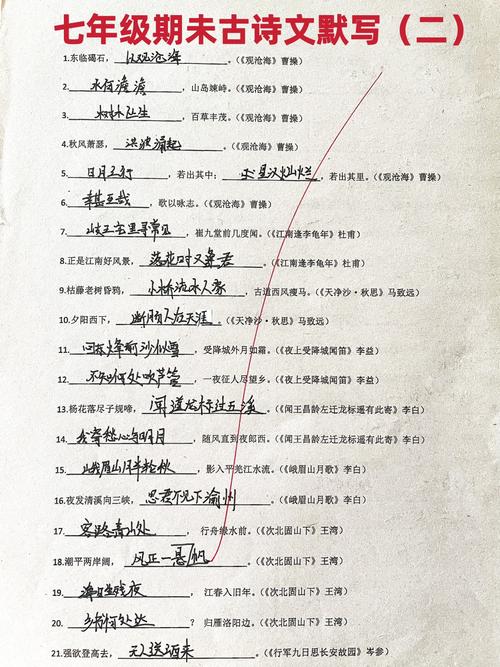 七年级期未古诗文默写（二）
1.东临碣石，以观沧海。（《观沧海》曹操）
2.水何澹澹，山岛竦峙。（《观沧海》曹操）
3.树木丛生，百草丰茂。（《观沧海》曹操）
4.秋风萧瑟，洪波涌起。（《观沧海》曹操）
5.日月之行，若出其中；星汉灿烂，若出其里。（《观沧海》曹操）
6.幸甚至哉，歌以咏志。（《观沧海》曹操）
7.岐王宅里寻常见，崔九堂前几度闻。（《江南逢李龟年》杜甫）
8.正是江南好风景，落花时又逢君。（《江南逢李龟年》杜甫）
9.枯藤老树昏鸦，小桥流水人家，古道西风瘦马。（《天净沙·秋思》马致远）
10.夕阳西下，断肠人在天涯。（《天净沙·秋思》马致远）
11.回乐烽前沙似雪，受降城外月如霜。（《夜上受降城闻笛》李益）
12.不知何处吹芦管，一夜征人尽望乡。（《夜上受降城闻笛》李益）
13.杨花落尽子规啼，闻道龙标过五溪。（《闻王昌龄左迁龙标遥有此寄》李白）
14.我寄愁心与明月，随风直到夜郎西。（《闻王昌龄左迁龙标遥有此寄》李白）
15.峨眉山月半轮秋，影入平羌江水流。（《峨眉山月歌》李白）
16.夜发清溪向三峡，思君不见下渝州。（《峨眉山月歌》李白）
17.客路青山处，行舟绿水前。（《次北固山下》王湾）
18.潮平两岸阔，风正一悬帆。（《次北固山下》王湾）
19.海日生残夜，江春入旧年。（《次北固山下》王湾）
20.乡书何处达？归雁洛阳边。（《次北固山下》王湾）
21.强欲登高去，无人送酒来。（《行军九日思长安故园》岑参）